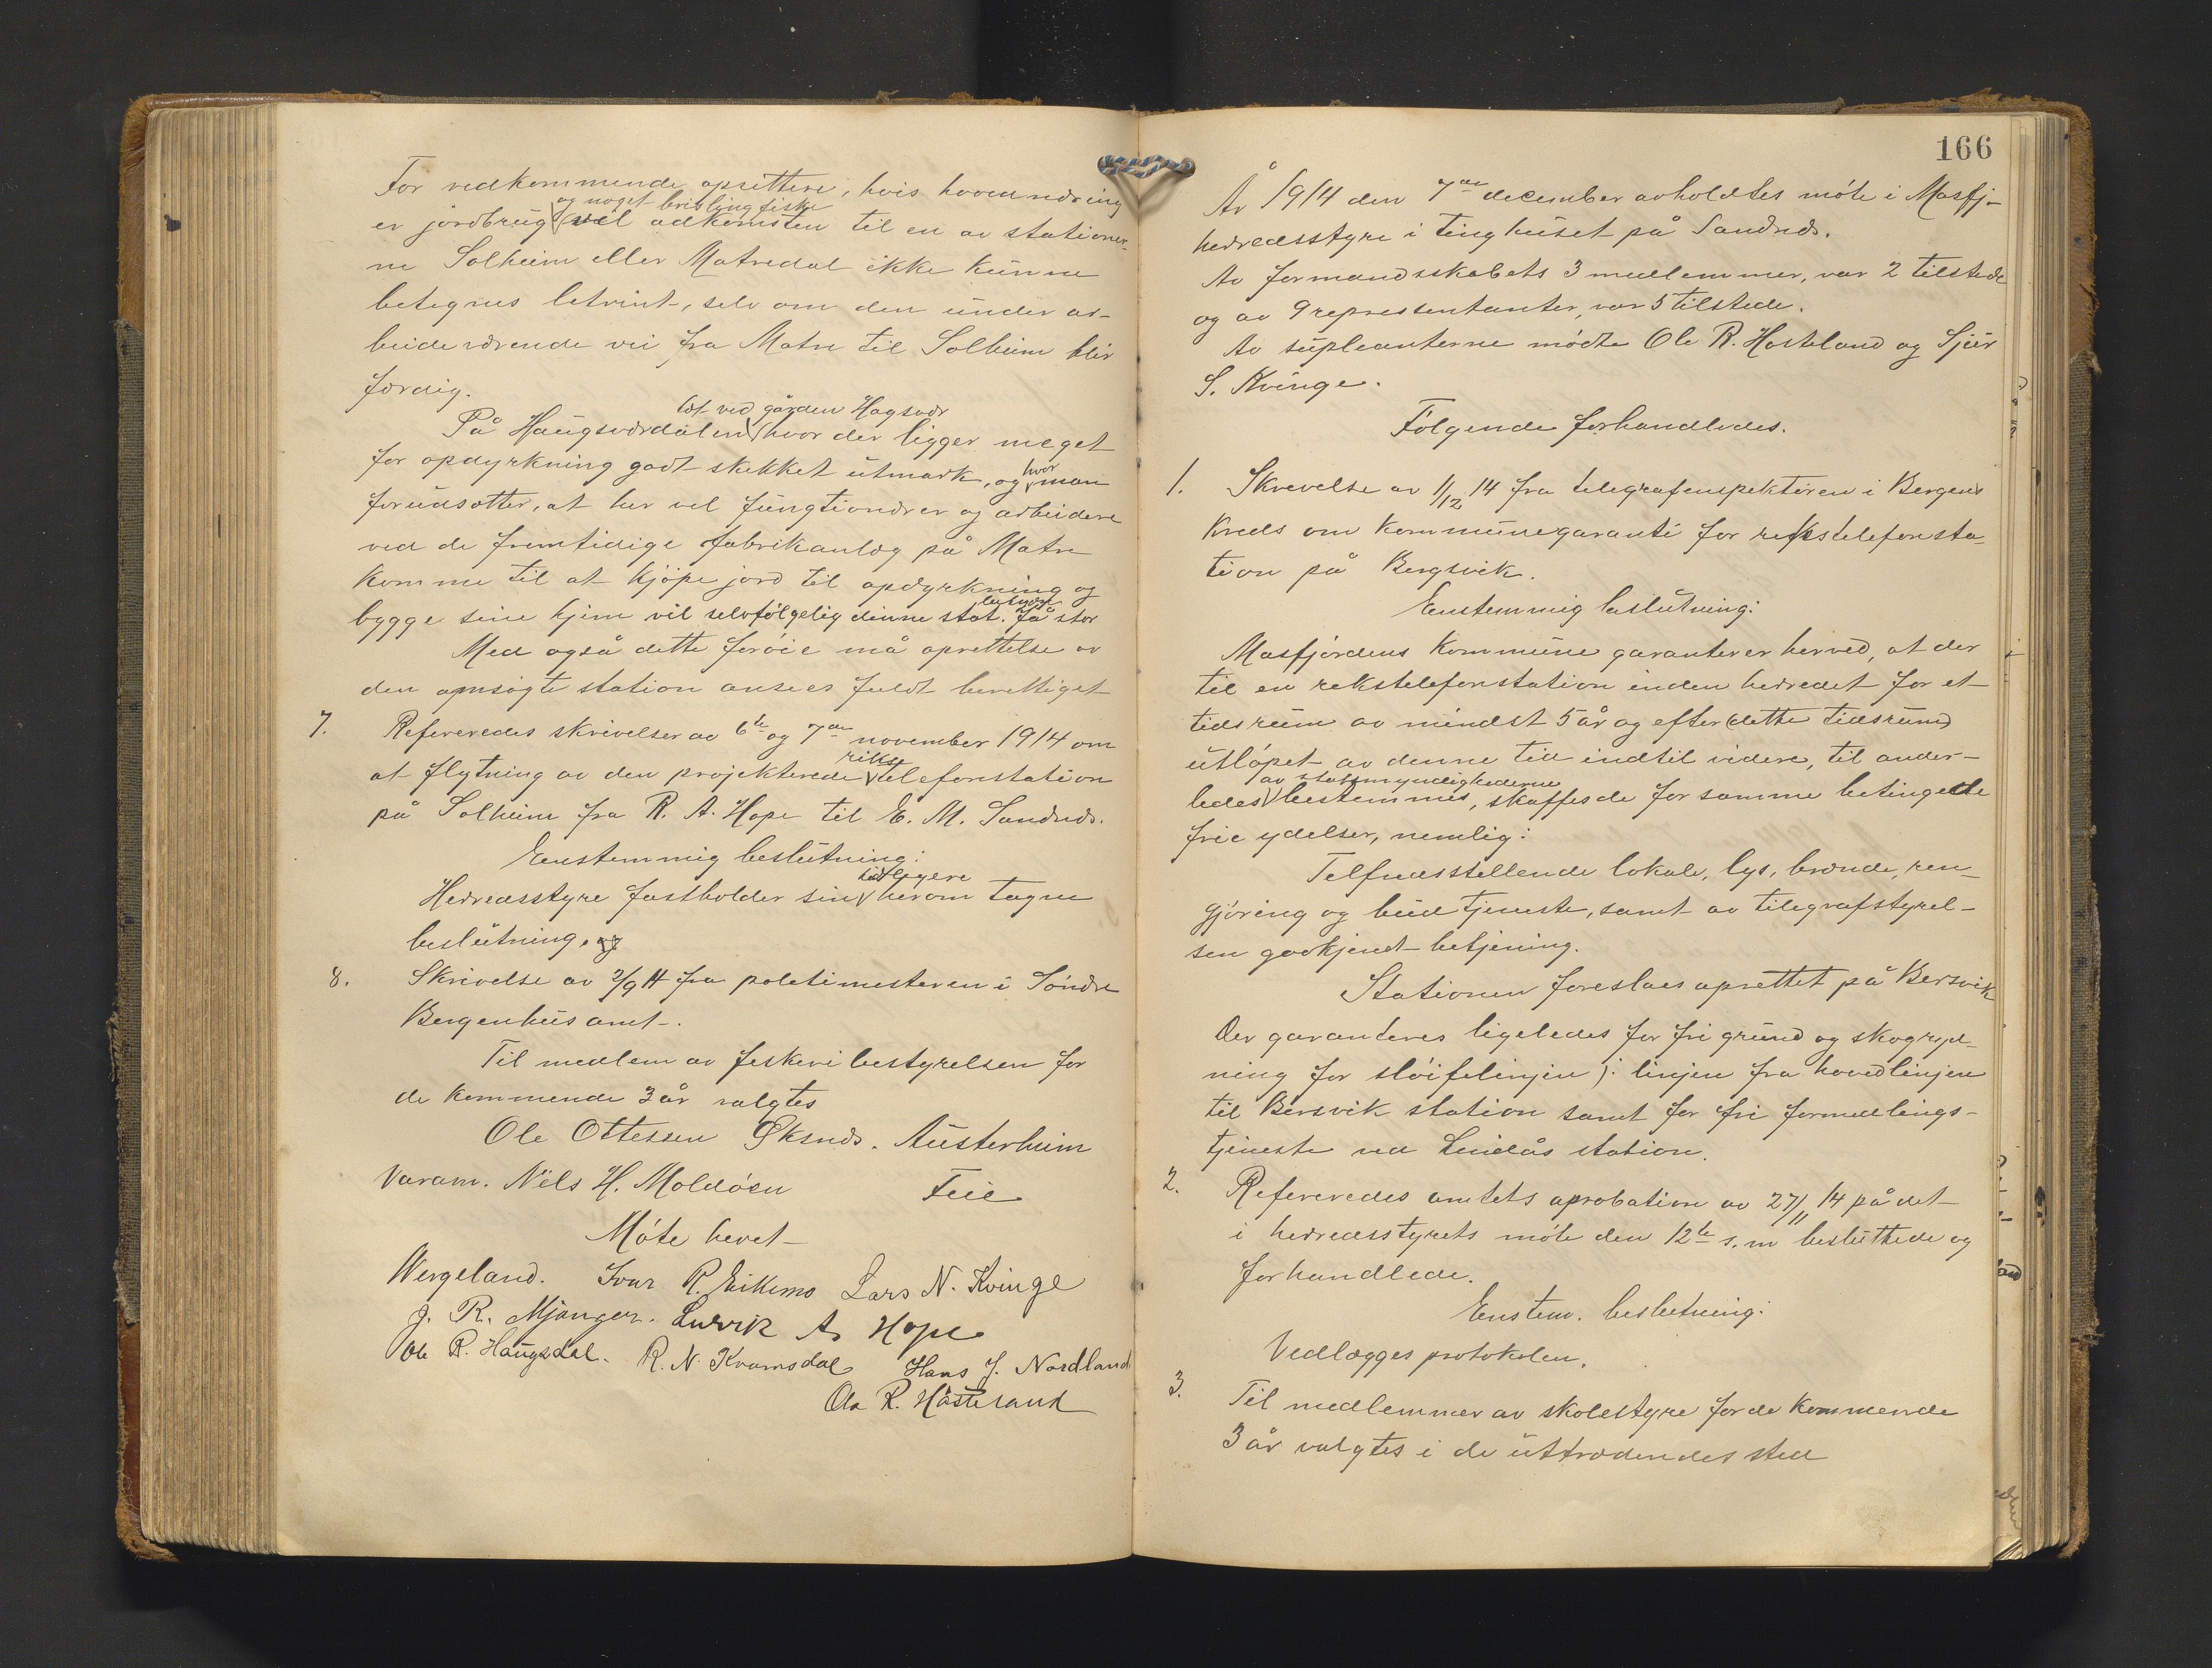 For vedkommende opsittere, hvis hovednæring
og noget brislingfiske
er jordbrug vil adkomsten til en av stationer-
ne Solheim eller Matredal ikke kunne
betegnes letvint, selv om den under ar-
beide værende vei fra Matre til Solheim blir
færdig.
tæt ved gården Hagsvær
På Haugsværdalen hvor der ligger meget
for opdyrkning godt skikket utmark, og hvor man
forudsætter, at her vel fungtionærer og arbeidere
ved de fremtidige fabrikanlæg på Matre
komme til at kjöpe jord til opdyrkning og
bygge sine hjem vil selvfölgelig denne stat. få stor
betydn.
Med også dette foröie må oprettelse av
den omsögte station ansees fuldt berettiget
7. Refereredes skrivelser av 6te og 7de november 1914 om
at flytning av den projekterede riks telefonstation
på Solheim fra R. A. Hope til E. M. Sandnæs.
Enstemmig beslutning:
Herredsstyre fastholder sin tidligere herom tagne
beslutning. og
8. Skrivelse av 2/9 14 fra politimesteren i Söndre
Bergenhus amt.
Til medlem av fiskeribestyrelsen for
de kommende 3 år valgtes
Ole Ottessen Öksnæs. Austerheim
Varam. Nils H. Moldöen Feie
Möte hevet
Wergeland. Ivar R. Eikemo Lars N. Kvinge
J. R. Mjanger. Ludvik A. Hope
Ole R. Haugsdal. R. N. Kvamsdal Hans J. Nordland
Ole R. Håsteland
166
År 1914 den 7de december avholdtes möte i Masfj-
herredsstyre i tinghuset på Sandnæs.
Av formandsskabets 3 medlemmer, var 2 tilstede
og av 9 representanter, var 5 tilstede.
Av supleanterne mödte Ole R. Hosteland og Sjur
S. Kvinge.
Fölgende forhandledes.
1. Skrevelse av 1/12 14 fra telegrafinspektören i Bergens
Kreds om kommunegaranti for rekstelefonsta-
tion på Bergsvik.
Enstemmig beslutning:
Masfjordens kommune garanterer herved, at der
til en rekstelefonstation inden herredet for et
tidsrum av mindst 5 år og efter (dette tidsrum)
utlöpet av denne tid indtil videre, til ander-
av statsmyndighederne
ledes bestemmes, skaffes de for samme betingede
frie ydelser, nemlig:
Telfredsstellende lokale, lys, brænde, ren-
gjöring og bud tjeneste, samt av telegrafstyrel-
sen godkjendt betjening.
Stationen foreslaes oprettet på Bersvik
Der garanteres ligeledes for fri grund og skogryd-
ning for slöifelinjen ): linjen fra hovedlinjen
til Bersvik station samt for fri formedlings-
tjeneste ved Lindås station.
2. Refereredes amtets aprobation av 27/11 14 på det
i herredsstyrets möte den 12te s. m besluttede og
forhandlede.
Enstem. beslutning:
Vedlægges protokolen.
3. Til medlemmer av skolestyre for de kommende
3 år valgtes i de uttrædendes sted